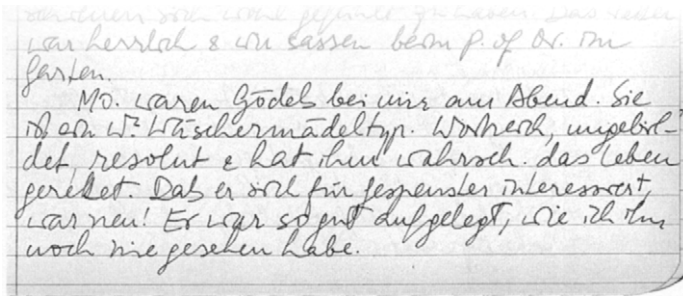 scheinen sich wohl gefühlt zu haben. Das
war herrlich & wir sassen beim p. of Dr. im
Garten.
Mo. waren Gödels bei uns am Abend. Sie
ist ein Wr Wäschermädeltyp. Wortreich, ungebil-
det, resolut & hat ihm wahrsch. das Leben
gerettet. Dass er sich für Gespenster interessiert,
war neu! Er war so gut aufgelegt, wie ich ihn
noch nie gesehen habe.